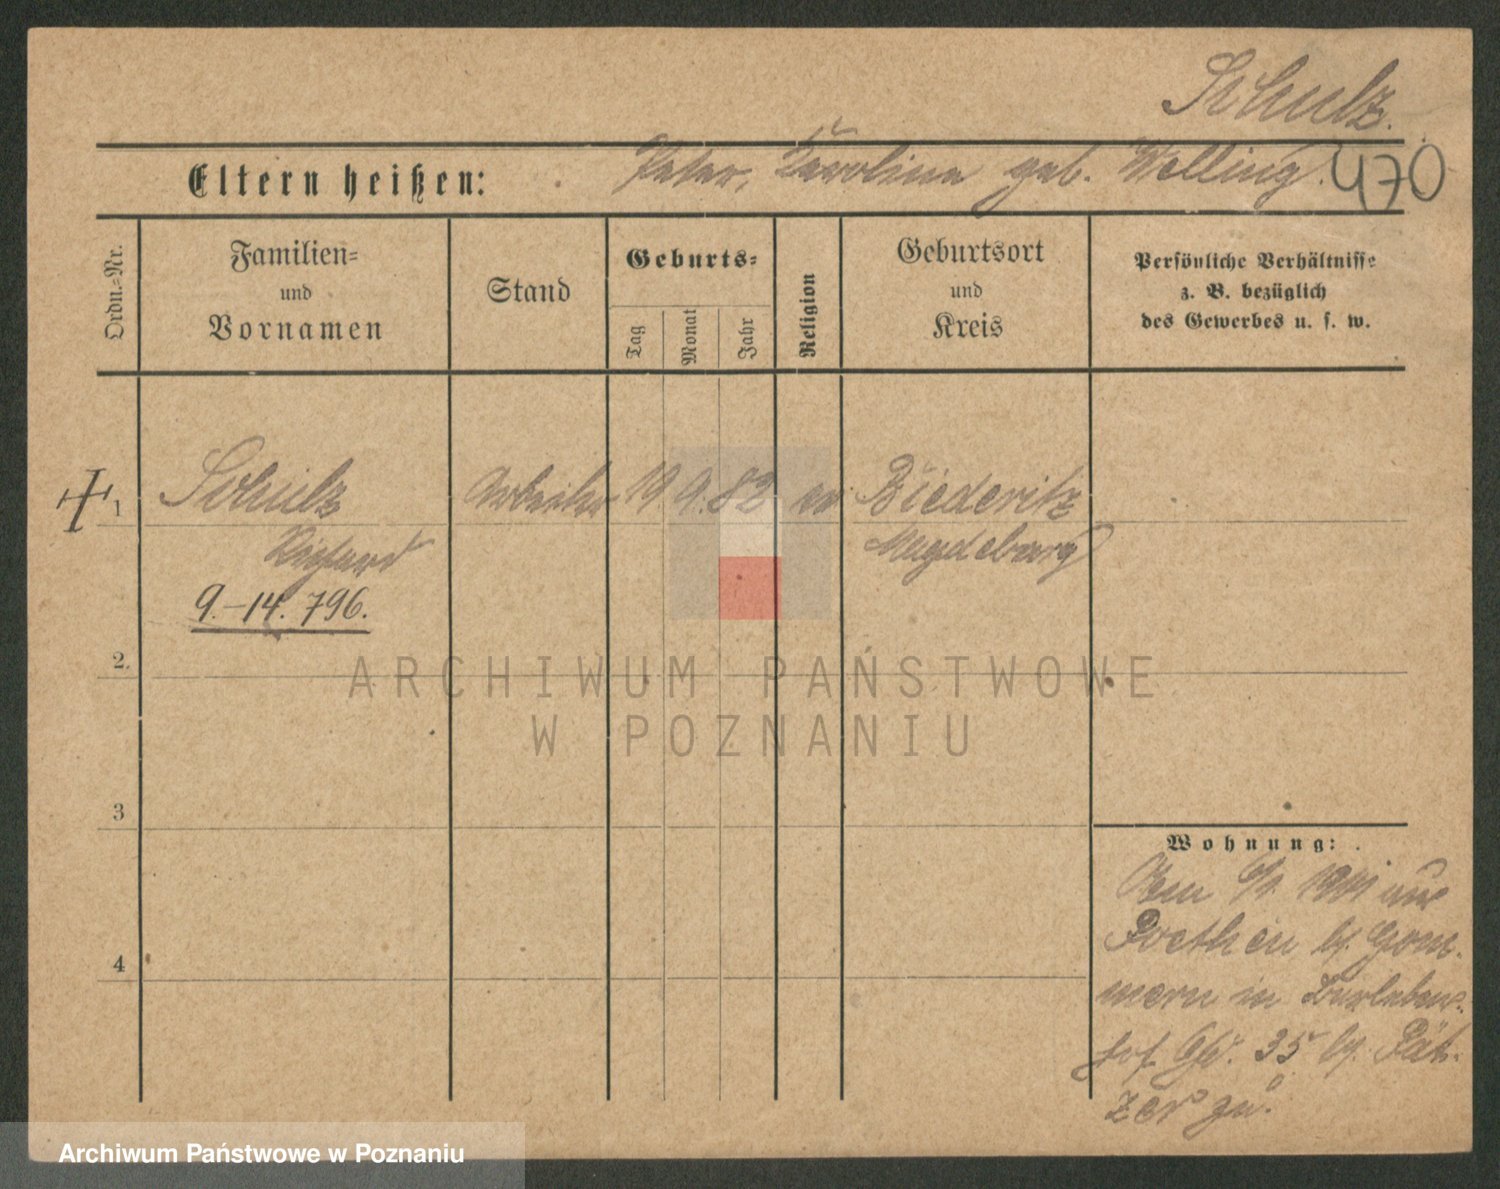 Schulz.
Eltern heißen: Peter, Karoline geb. Welling.
470
Ordn.-Nr.
Familien-
und
Vornamen
Stand
Geburts-
Tag
Monat
Jahr
Religion
Geburtsort
und
Kreis
Persönliche Verhältnisse
z. B. bezüglich
des Gewerbes u. s. w.
1 Schulz Arbeiter 19. 9. 82 ev Biederitz
Richard Magdeburg
9.-14. 796.
2.
ARCHIWUM PAŃSTWOWE
W POZNANIU
3
4
Wohnung:
1901 aus
Poethen b. Gom-
mern in
hof No. 35 b. Pät-
zer zu.
Archiwum Państwowe w Poznaniu